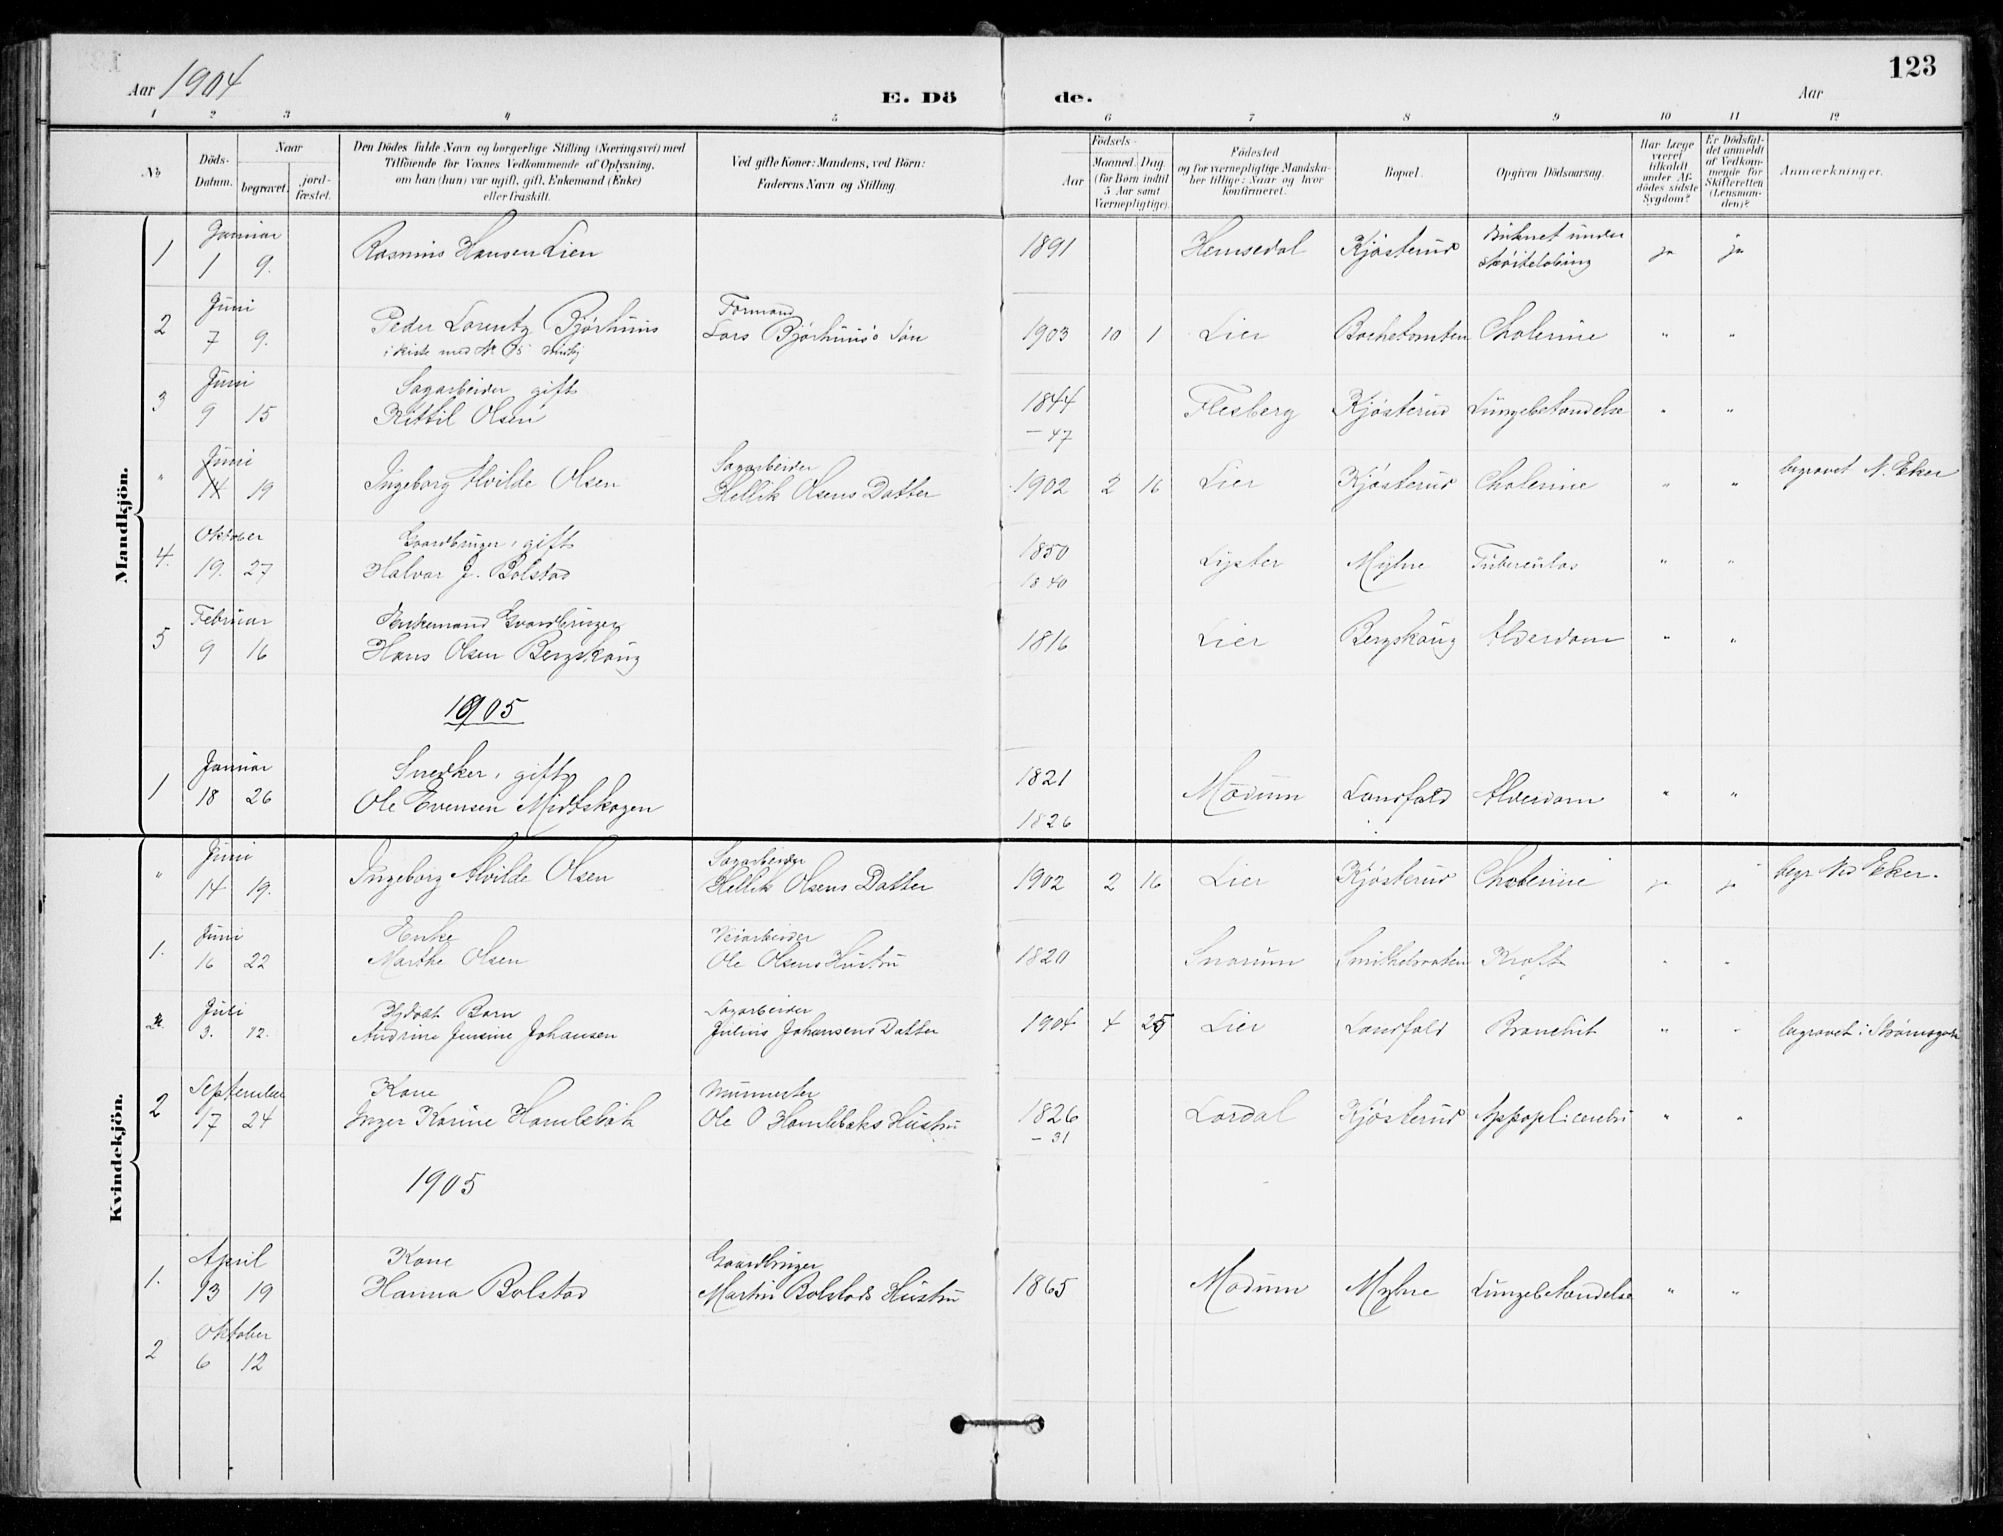 123
Aar 1904
E. Dö
de.
Aar
1 2 3 4 5 6 7 8 9 10 11 12
№
Döds-
Datum.
Naar
begravet.
jord-
fæstet.
Den Dödes fulde Navn og borgerlige Stilling (Næringsvei) med
Tilföiende for Voxnes Vedkommende af Oplysning,
om han (hun) var ugift, gift, Enkemand (Enke)
eller fraskilt.
Ved gifte Koner: Mandens, ved Börn:
Faderens Navn og Stilling.
Födsels-
Aar
Maaned. Dag.
(for Børn indtil
5 Aar samt
Værnepligtige).
Födested
og for værnepligtige Mandska-
ber tillige: Naar og hvor
konfirmeret.
Bopæl.
Opgiven Dödsaarsag.
Har Læge
været
tilkaldt
under Af-
dödes sidste
Sygdom?
Er Dödsfal-
det anmeldt
af Vedkom-
mende for
Skifteretten
(Lensman-
den)?
Anmærkninger.
Mandkjön.
Januar
1 1 9. Rasmus Hansen Lien 1891 Hemsedal Kjøsterud Druknet under ja ja
skøiteløbing
Juni Formand
2 7 9. Peder Lorentz Bjørhuus Lars Bjørhuus's Søn 1903 10 1 Lier Bachetomten Cholerine " "
i kiste med №
Juni Sagarbeider, gift
3 9 15 Kittil Olsen 1844 Flesberg Kjøsterud Lungebetændelse " "
– 47
Juni Sagarbeider
" 14 19 Ingeborg Alvilde Olsen Hellik Olsens Datter 1902 2 16 Lier Kjøsterud Cholerine " " begravet N. Eker
Oktober Gaardbruger, gift
4. 19. 27 Halvor J. Bolstad 1850 Lyster Myhre Tuberculos " "
1840
Februar Enkemand Gaardbruger
5 9 16 Hans Olsen Bergskaug 1816 Lier Bergskaug Alderdom " "
1905
Januar Snedker, gift
1 18 26 Ole Evensen Midtskogen 1821 Modum Landfald Alderdom " "
1826
Kvindekjön.
Juni Sagarbeider
" 14 19. Ingeborg Alvilde Olsen Hellik Olsens Datter 1902 2 16 Lier Kjøsterud Cholerine ja ja begr Nd Eker.
Juni Enke Veiarbeider
1. 16 22 Marthe Olsen Ole Olsens Hustru 1820 Snarum Kræft " "
Juli Barn Sagarbeider
3. 12. Andrine Jensine Johansen Julius Johansens Datter 1904 4 25 Lier Landfald Bronchit " " begravet i
September Kone Murmester
2 17 24 Inger Karine Hamlebak Ole O Hamlebaks Hustru 1826 Lardal Kjøsterud Appopl: cerebri " "
– 31
1905
April Kone Gaardbruger
1. 13 19 Hanna Bolstad Martin Bolstads Hustru 1865 Modum Myhre Lungebetændelse " "
Oktober
2 6 12